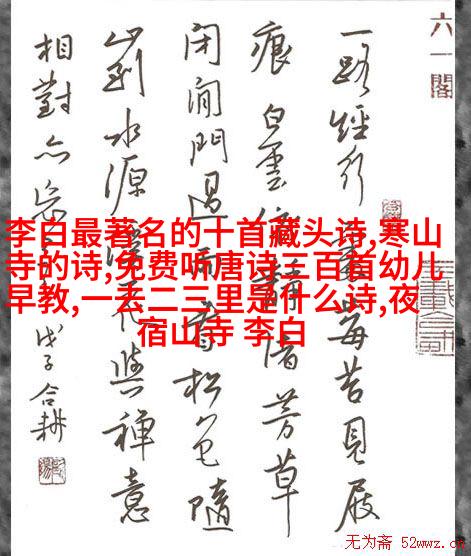 六一閣
一路經行處莓苔見屐
痕白雲依靜渚芳草
閉閒門過雨看松色隨
山到水源溪花與禪意
相對亦忘言 戊子合耕
李白最著名的十首藏头诗,寒山
寺的诗,免费听唐诗三百首幼儿
早教,一去二三里是什么诗,夜
宿山寺 李白
无为斋 52wwz.cn